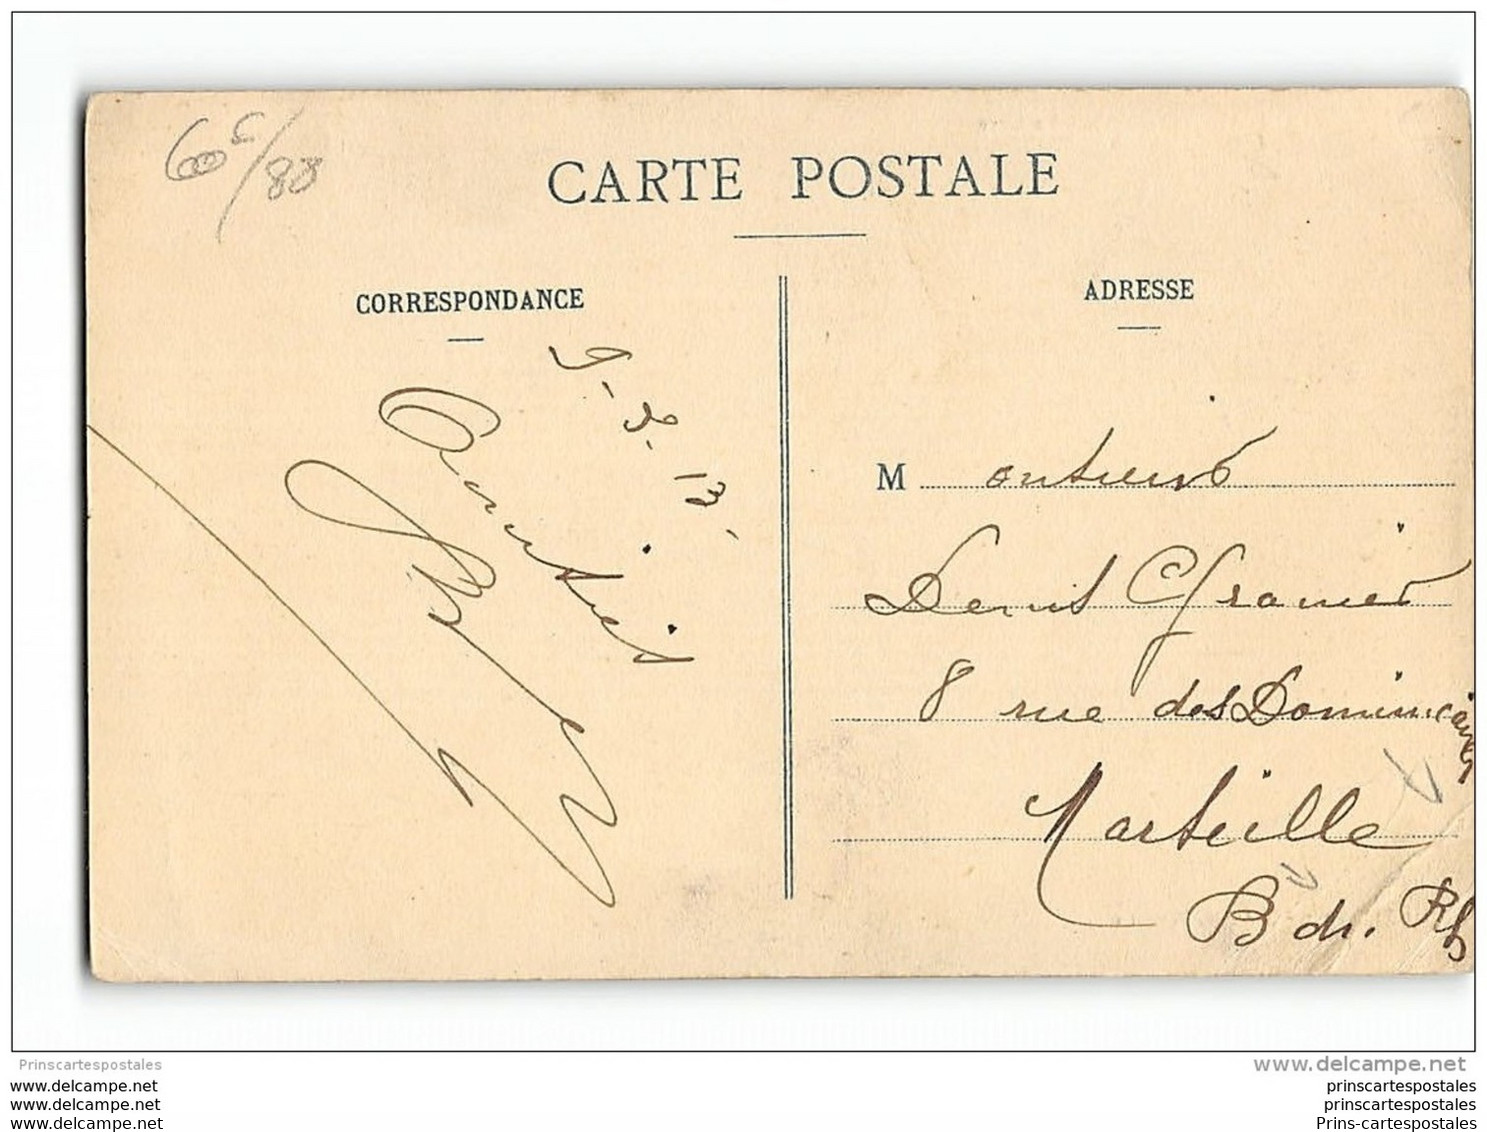 60c/88
CARTE POSTALE
CORRESPONDANCE
ADRESSE
9-3-13
Amitiés
Monsieur
Denis Granier
8 rue des Dominicaines
Marseille
B du Rh
Prinscartespostales
www.delcampe.net
www.delcampe.net
www.delcampe.net
www.delcampe.net
prinscartespostales
prinscartespostales
Prins-cartespostales